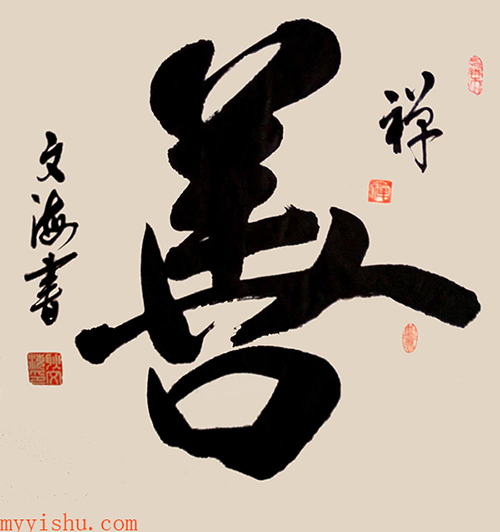 禅
善
文海書
myyishu.com